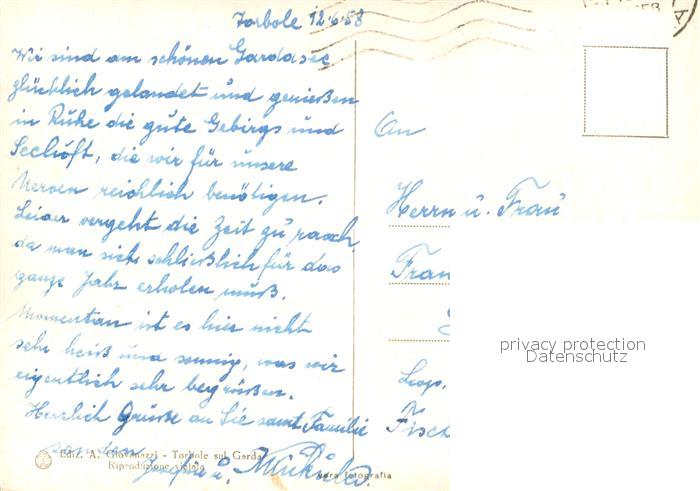 Torbole 12.6.58
Wir sind am schönen Gardasee
glücklich gelandet und genießen
in Ruhe die gute Gebirgs und
Seeluft, die wir für unsere
Nerven reichlich benötigen.
Leider vergeht die Zeit zu rasch,
da man sich schließlich für das
ganze Jahr erholen muß.
Momentan ist es hier nicht
sehr heiß und sonnig, was wir
eigentlich sehr begrüßen.
Herzlich Grüße an Sie samt Familie
senden
Ediz. A. Giovanazzi - Torbole sul Garda
Riproduzione vietata
Vera fotografia
An
Herrn u. Frau
Fran
Leop.
Fisch
privacy protection
Datenschutz